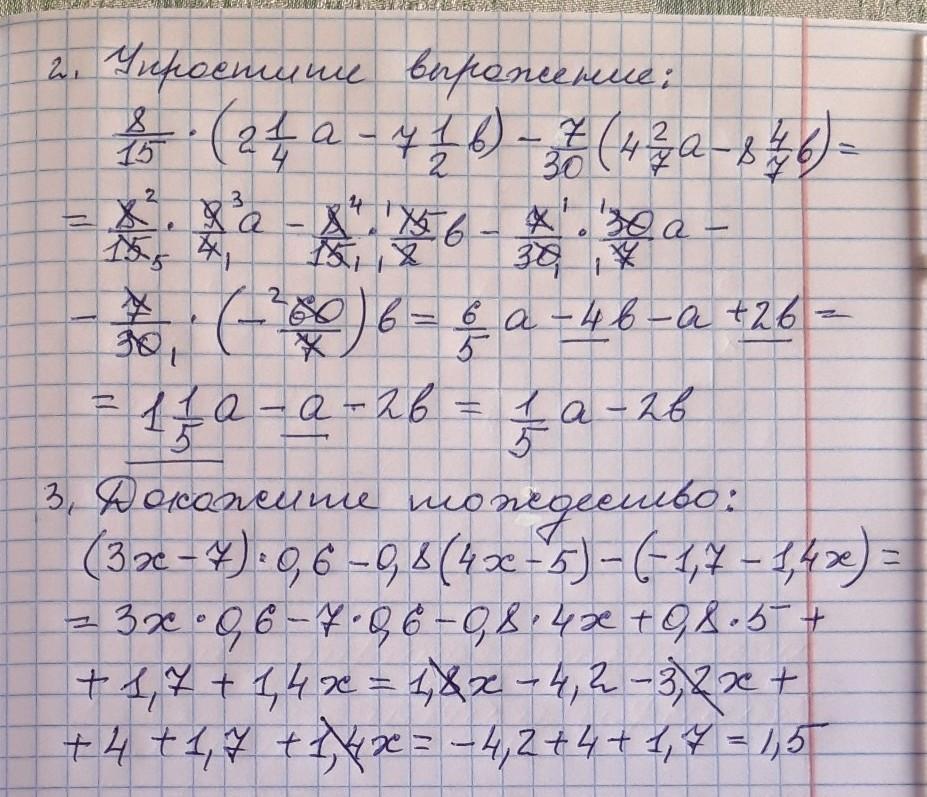 2. Упростите выражение:
8/15 · (2 1/4 a − 7 1/2 b) − 7/30 (4 2/7 a − 8 4/7 b) =
= 8/15 · 9/4 a − 8/15 · 15/2 b − 7/30 · 30/7 a −
− 7/30 · (− 60/7) b = 6/5 a − 4b − a + 2b =
= 1 1/5 a − a − 2b = 1/5 a − 2b
3. Докажите тождество:
(3x − 7) · 0,6 − 0,8 (4x − 5) − (−1,7 − 1,4x) =
= 3x · 0,6 − 7 · 0,6 − 0,8 · 4x + 0,8 · 5 +
+ 1,7 + 1,4x = 1,8x − 4,2 − 3,2x +
+ 4 + 1,7 + 1,4x = −4,2 + 4 + 1,7 = 1,5